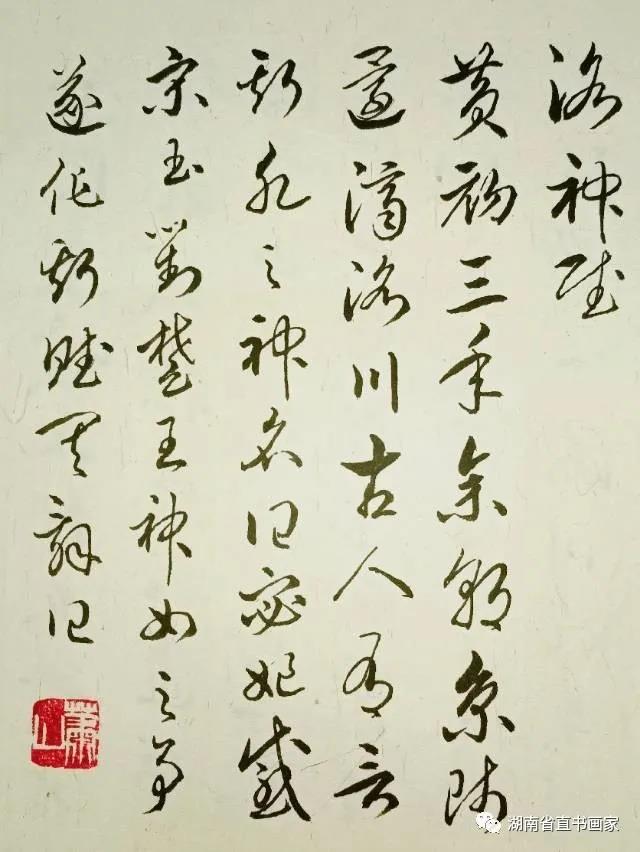 洛神赋
黄初三年余朝京师
還濟洛川古人有言
斯水之神名曰宓妃感
宋玉對楚王神女之事
遂作斯赋其辞曰
蕭山
湖南省直书画家